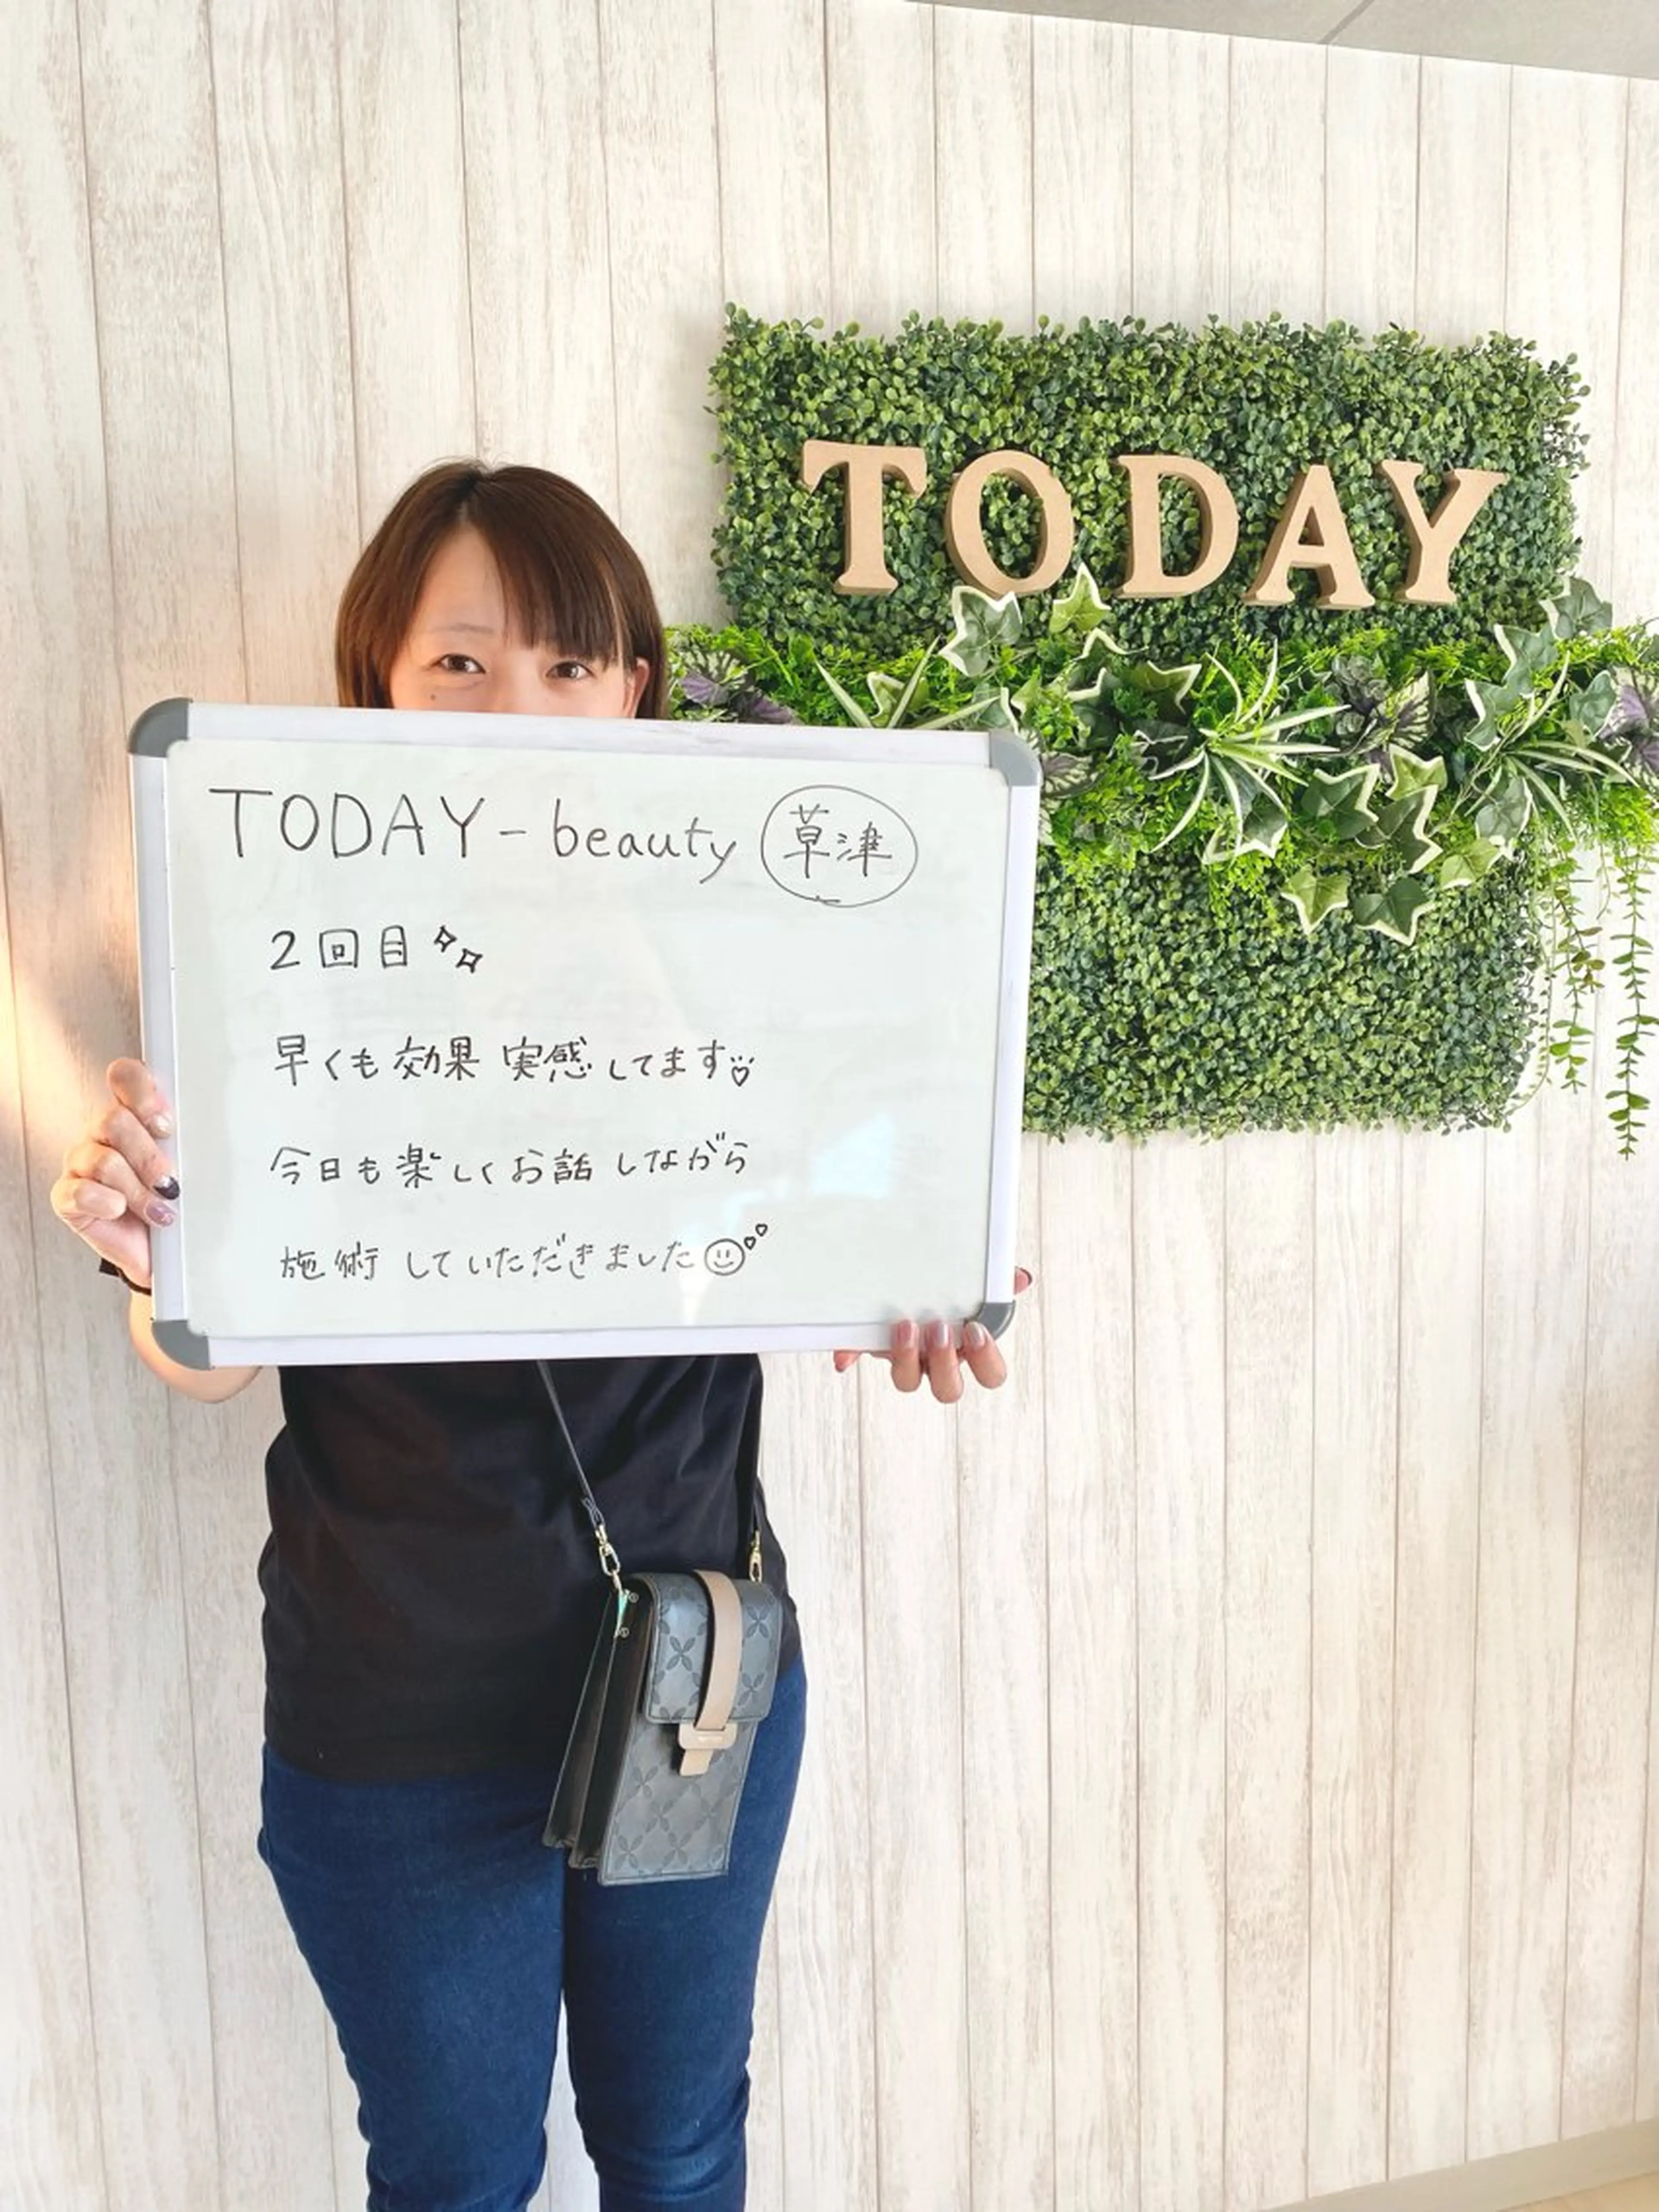 TODAY
TODAY-beauty 草津
2回目
早くも効果実感してます
今日も楽しくお話しながら
施術していただきました